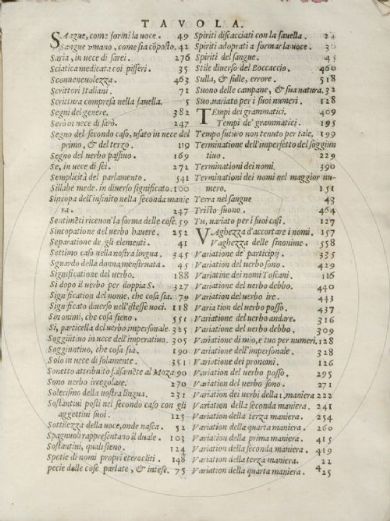 TAVOLA.
Sangue, come formi la voce. 49
Sangue umano, come sia cõposto. 42
Saria, in vece di sarei. 276
Sciatica medicata coi pifferi. 35
Sconuenevolezza. 463
Scrittori Italiani. 71
Scrittura compresa nella fauella. 5
Segni del genere. 382
Serò in vece di sarò. 247
Segno del secondo caso, usato in vece del
primo, & del terzo. 119
Segno del verbo passiuo. 169
Se, in vece di sei. 271
Semplicità del parlamento. 541
Sillabe mede. in diuerso significato. 100
Sincopa dell'infinito nella seconda manie
ra. 247
Sentimēti riceuon la forma delle cose. 59
Sincopatione del verbo hauere. 252
Separatione de gli elementi. 41
Settimo caso nella nostra lingua. 345
Sguardo della donna mestruata. 45
Significatione del verbo. 188
Si dopo il verbo per doppia S. 327
Signification del nome, che cosa sia. 79
Significato diuerso nell'istesse voci. 118
Seronimi, che cosa sieno. 551
Si, particella del verbo impersonale. 325
Soggiūtiuo in vece dell'imperatiuo. 305
Soggiuntiuo, che cosa sia. 190
Solo in vece di solamente. 351
Sonetto attribuito falsamēte al Moza 90
Sono verbo irregolare. 270
Solecismo della nostra lingua. 231
Sostantiui posti nel secondo caso con gli
aggettiui suoi. 125
Sottilezza della voce, onde nasca. 52
Spagnuoli rappresentano il duale. 103
Sostantiui, quali sieno. 124
Spetie di nomi propri eterocliti. 148
pecie delle cose parlate, & intese. 75
Spiriti discacciati con la fauella. 24
Spiriti adoprati a formar la voce. 30
Spiriti del sangue. 43
Stile diuerso del Boccaccio. 460
Sulla, & sulle, errore. 518
Suono delle campane, & sua natura. 32
Suo, variato per i suoi numeri. 128
Tempi de grammatici. 409
Tempi de' grammatici. 195
Tempo futuro non tenuto per tale. 199
Terminatione dell'imperfetto del soggiun
tiuo. 229
Terminationi dei nomi. 390
Terminatione dei nomi nel maggior nu-
mero. 151
Terra nel sangue. 43
Tristo suono. 464
Tu, variato per i suoi casi. 127
Vaghezza d'accortare i nomi. 157
Vaghezza delle sinonime. 558
Variatione de participij. 335
Variation del verbo sono. 429
Variatine dei nomi Toscani. 116
Variatione del verbo debbo. 440
Variation del verbo ire. 443
Variation del verbo posso. 437
Variatione del verbo andare. 316
Variatione del verbo debbo. 309
Variatione di mio, e tuo per numeri. 128
Variatione dell'impersonale. 328
Variatione dei pronomi. 126
Variation del verbo posso. 295
Variation del verbo sono. 271
Variation dei verbi della 1, maniera 222
Variation della seconda maniera. 241
Variation della terza maniera. 254
Variation della quarta maniera. 260
Variation della prima maniera. 415
Variation della seconda maniera. 419
Variation della terza maniera. 22
Variation della quarta maniera. 425